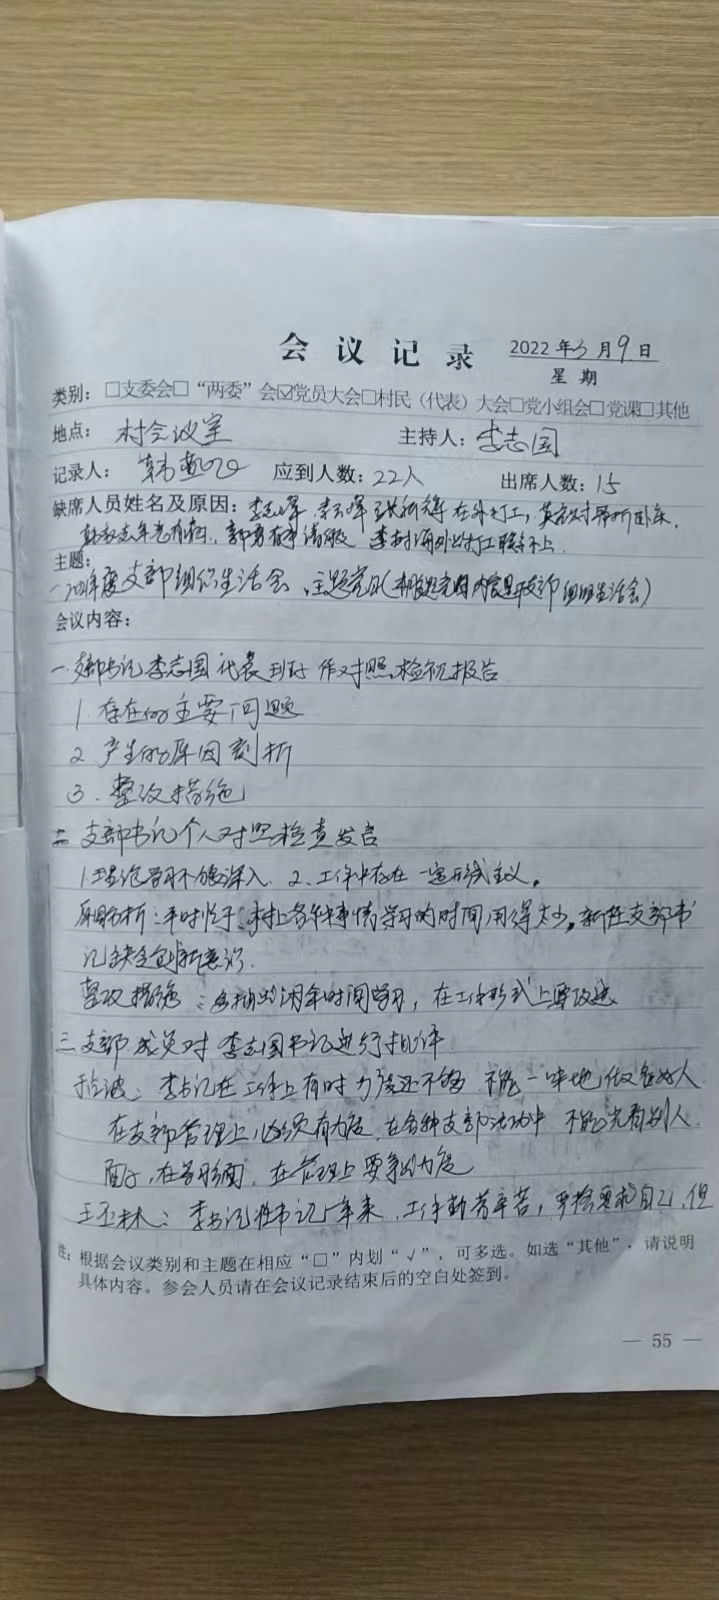 会议记录 2022年3月9日
星期
类别：□支委会□“两委”会☑党员大会□村民（代表）大会□党小组会□党课□其他
地点： 村会议室 主持人：李志国
记录人： 韩 应到人数：22人 出席人数：15
缺席人员姓名及原因：李志峰 在外打工， 卧床.
有病. 有事请假 李 外出打工联系不上.
主题：
一.2021年度支部组织生活会、主题党日(本 主题党日内容是开支部组织生活会)
会议内容：
一.支部书记李志国代表班子作对照检视报告
1.存在的主要问题
2.产生的原因剖析
3.整改措施
二.支部书记个人对照检查发言
1.理论学习不够深入. 2.工作中存在一定形式主义。
原因分析：平时忙于村上各种事情学习的时间用得太少。新任支部书
记缺乏创新意识.
整改措施：多抽出闲余时间学习，在工作形式上要改进
三.支部成员对李志国书记进行批评
波：李书记在工作上有时力度还不够 不能一味地做老好人
在支部管理上,必须有力度 在各种支部活动中 不能光看别人
面子,在 方面. 在管理上要拿出力度
王 林：李书记任书记1年来,工作勤劳辛苦，严格要求自己,但
注：根据会议类别和主题在相应“□”内划“√”，可多选。如选“其他”，请说明
具体内容。参会人员请在会议记录结束后的空白处签到。
— 55 —